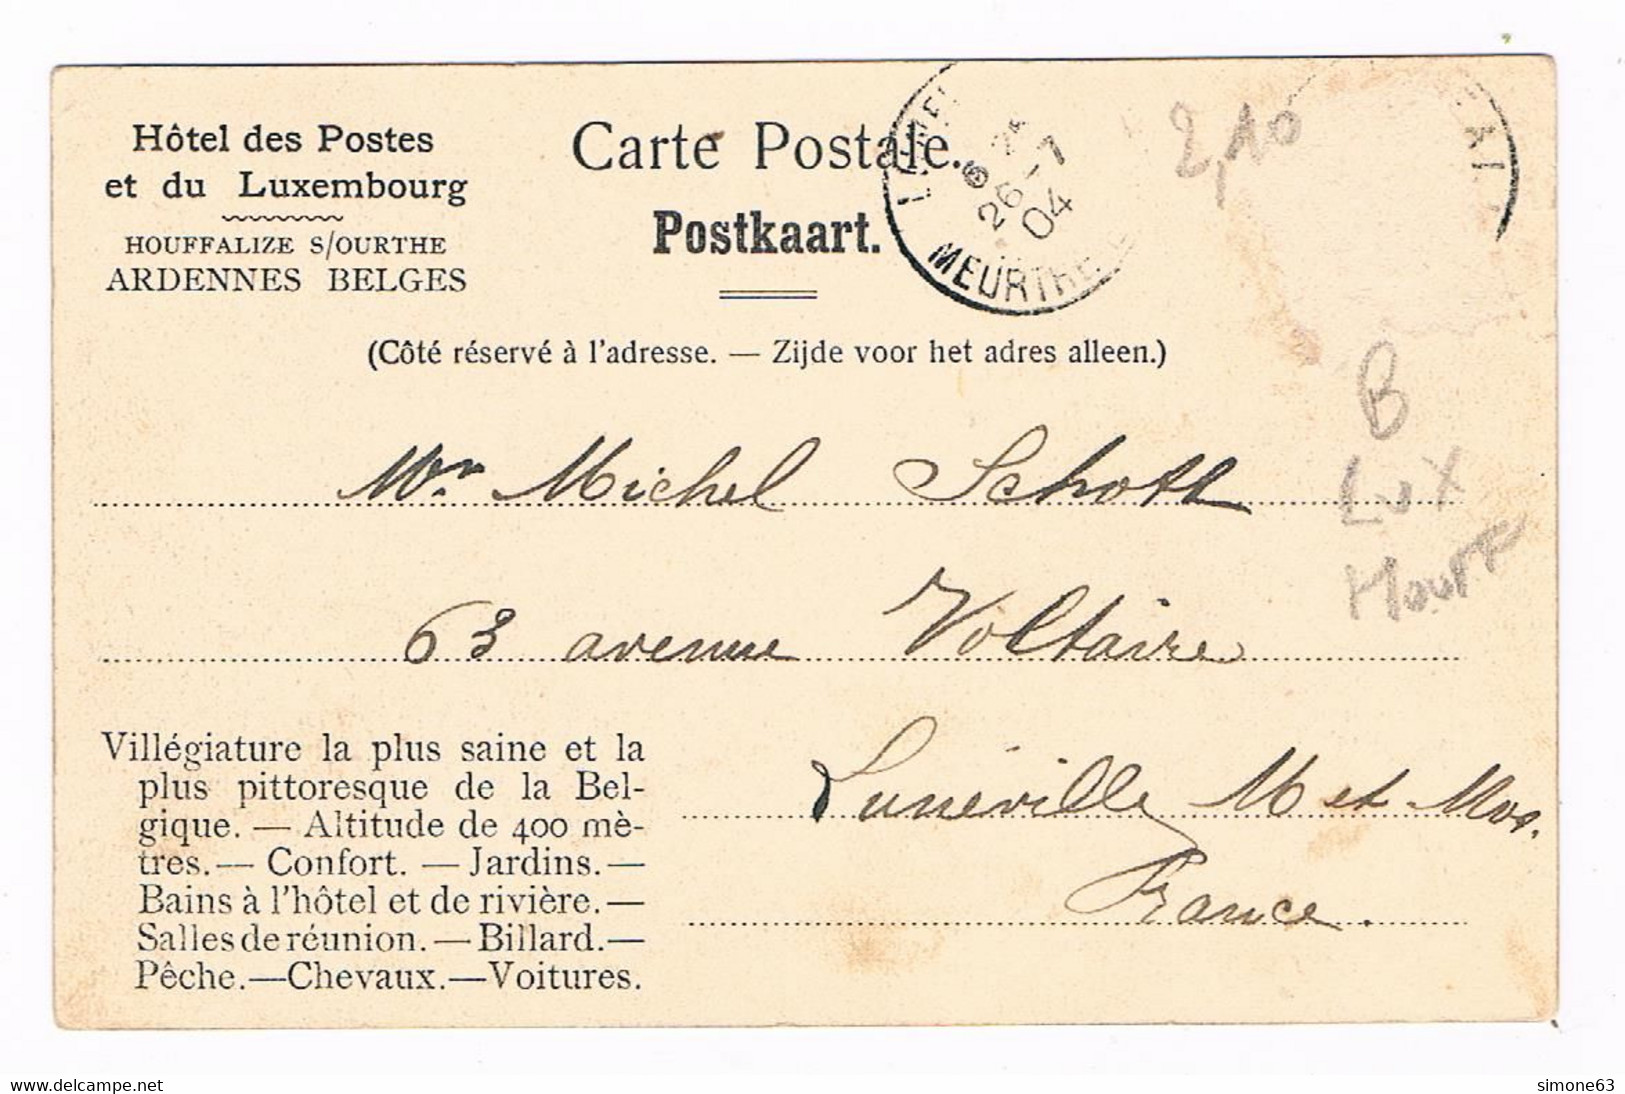 Hôtel des Postes
et du Luxembourg
HOUFFALIZE S/OURTHE
ARDENNES BELGES
Carte Postale.
Postkaart.
26-7
04
MEURTHE
2,10
(Côté réservé à l'adresse. — Zijde voor het adres alleen.)
B
Lux
Houff
Mr Michel Schott
63 avenue Voltaire
Lunéville M et Mos.
France.
Villégiature la plus saine et la
plus pittoresque de la Bel-
gique. — Altitude de 400 mè-
tres. — Confort. — Jardins. —
Bains à l'hôtel et de rivière. —
Salles de réunion. — Billard. —
Pêche. — Chevaux. — Voitures.
www.delcampe.net
simone63